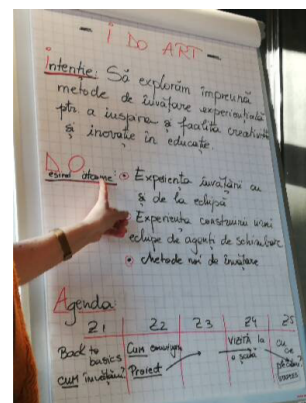 - I DO ART -
Intenție: Să explorăm împreună
metode de învățare experiențială
ptr. a inspira și facilita creativit.
și inovație în educație.
DO
Desired outcome: Experiența învățării cu
și de la echipă
Experiența construirii unei
echipe de agenți de schimbare
Metode noi de învățare
Agenda:
Z1 Z2 Z3 Z4 Z5
Back to basics
Cum învățăm?
Cum
Proiect
vizită la
o școală
cu
ce